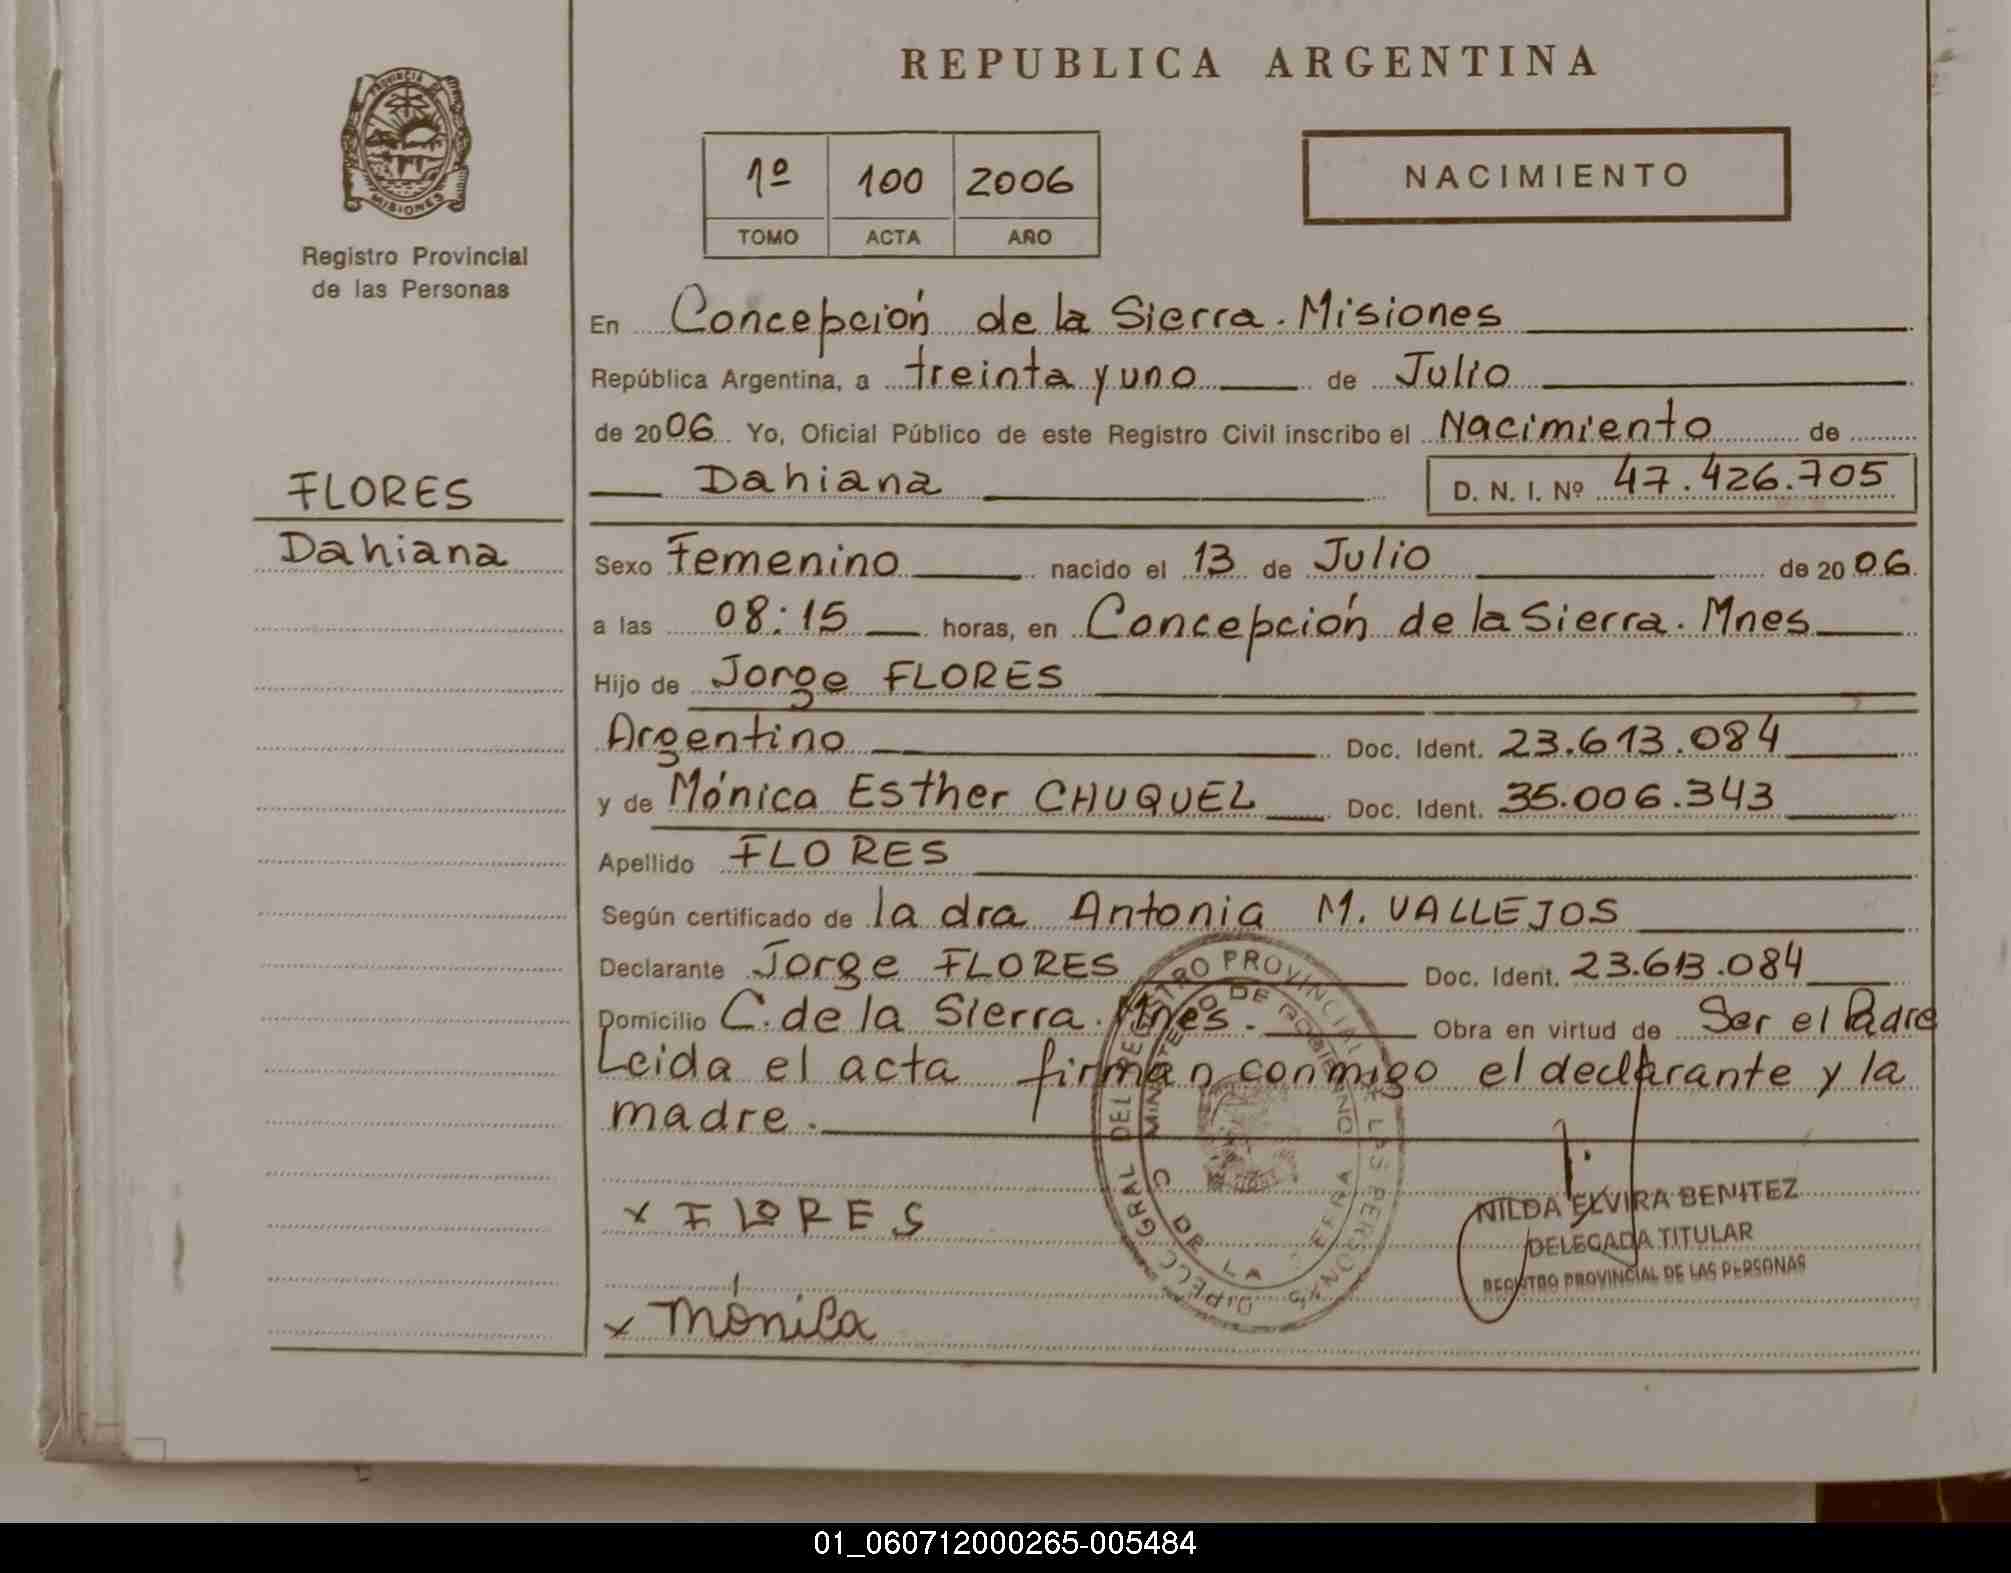 REPUBLICA ARGENTINA
PROVINCIA DE
MISIONES
Registro Provincial
de las Personas
1º 100 2006
TOMO ACTA AÑO
NACIMIENTO
En Concepción de la Sierra. Misiones
República Argentina, a treinta y uno de Julio
de 2006 Yo, Oficial Público de este Registro Civil inscribo el Nacimiento de
FLORES
Dahiana
Dahiana D. N. I. Nº 47.426.705
Sexo Femenino nacido el 13 de Julio de 2006.
a las 08:15 horas, en Concepción de la Sierra. Mnes
Hijo de Jorge FLORES
Argentino Doc. Ident. 23.613.084
y de Mónica Esther CHUQUEL Doc. Ident. 35.006.343
Apellido FLORES
Según certificado de la dra Antonia M. VALLEJOS
Declarante Jorge FLORES Doc. Ident. 23.613.084
Domicilio C. de la Sierra. Mnes. Obra en virtud de Ser el Padre
Leida el acta firman conmigo el declarante y la
madre.
x FLORES
x Mónica
GRAL DEL REGISTRO PROVINCIAL DE LAS PERSONAS
MINISTERIO DE GOBIERNO
C DE LA
NILDA ELVIRA BENITEZ
DELEGADA TITULAR
REGISTRO PROVINCIAL DE LAS PERSONAS
01_060712000265-005484